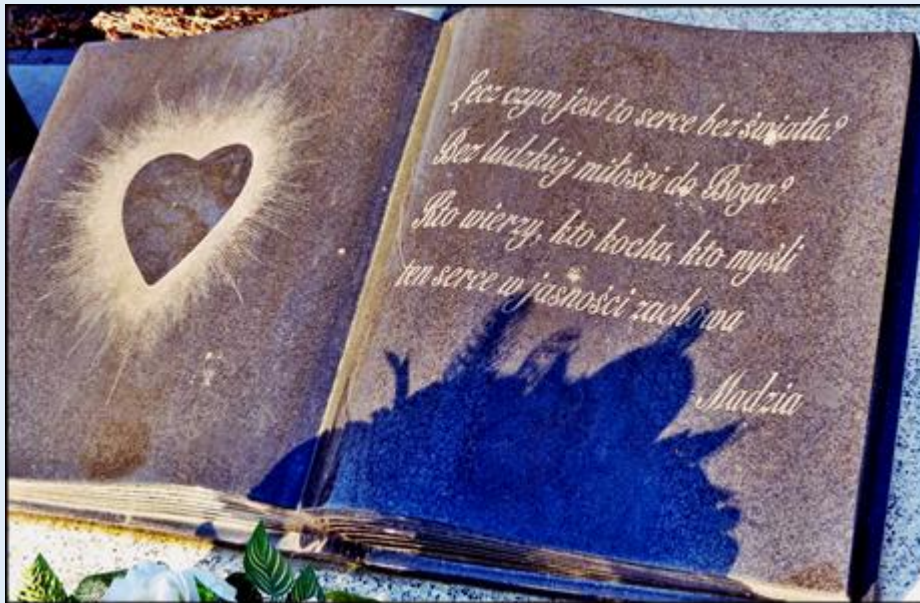 Lecz czym jest to serce bez światła?
Bez ludzkiej miłości do Boga?
Kto wierzy, kto kocha, kto myśli
ten serce w jasności zachowa
Madzia